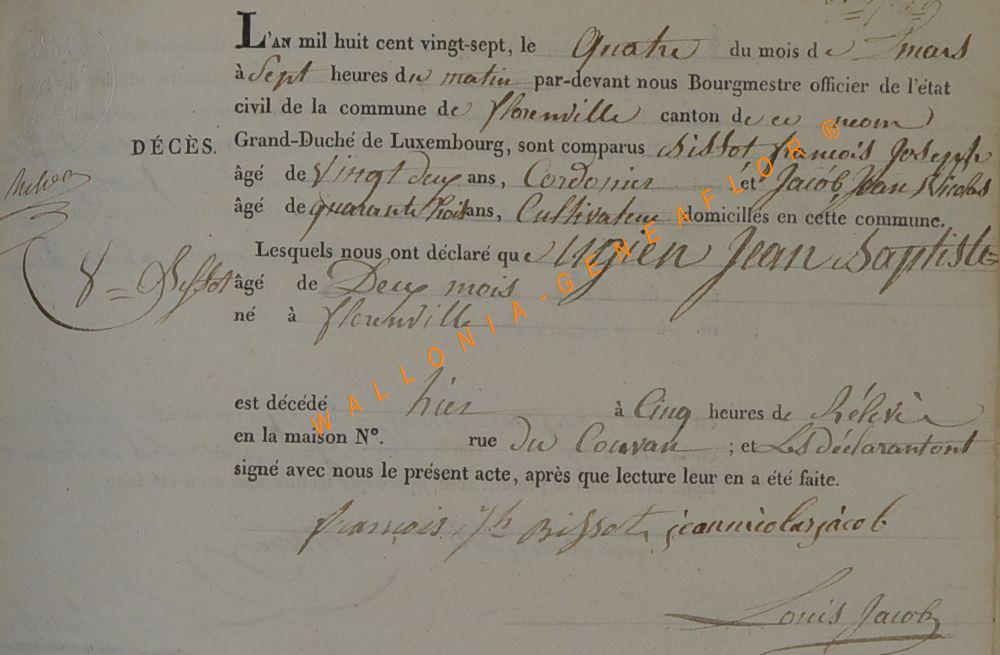 L'AN mil huit cent vingt-sept, le quatre du mois de mars
à Sept heures du matin par-devant nous Bourgmestre officier de l'état
civil de la commune de florenville canton de ce nom
DÉCÈS. Grand-Duché de Luxembourg, sont comparus Bissot françois Joseph
âgé de Vingt deux ans, Cordonier et Jacob Jean Nicolas
âgé de quarante huit ans, Cultivateur domiciliés en cette commune.
Lesquels nous ont déclaré que Jean Baptiste
8 = Bissot âgé de Deux mois
né à florenville
est décédé hier à Cinq heures de
en la maison N°. rue Du Couvan ; et Les déclarant ont
signé avec nous le présent acte, après que lecture leur en a été faite.
françois Jh Bissot jean nicolas jacob
Louis Jacob
WALLONIA-GENEAFLOR ®